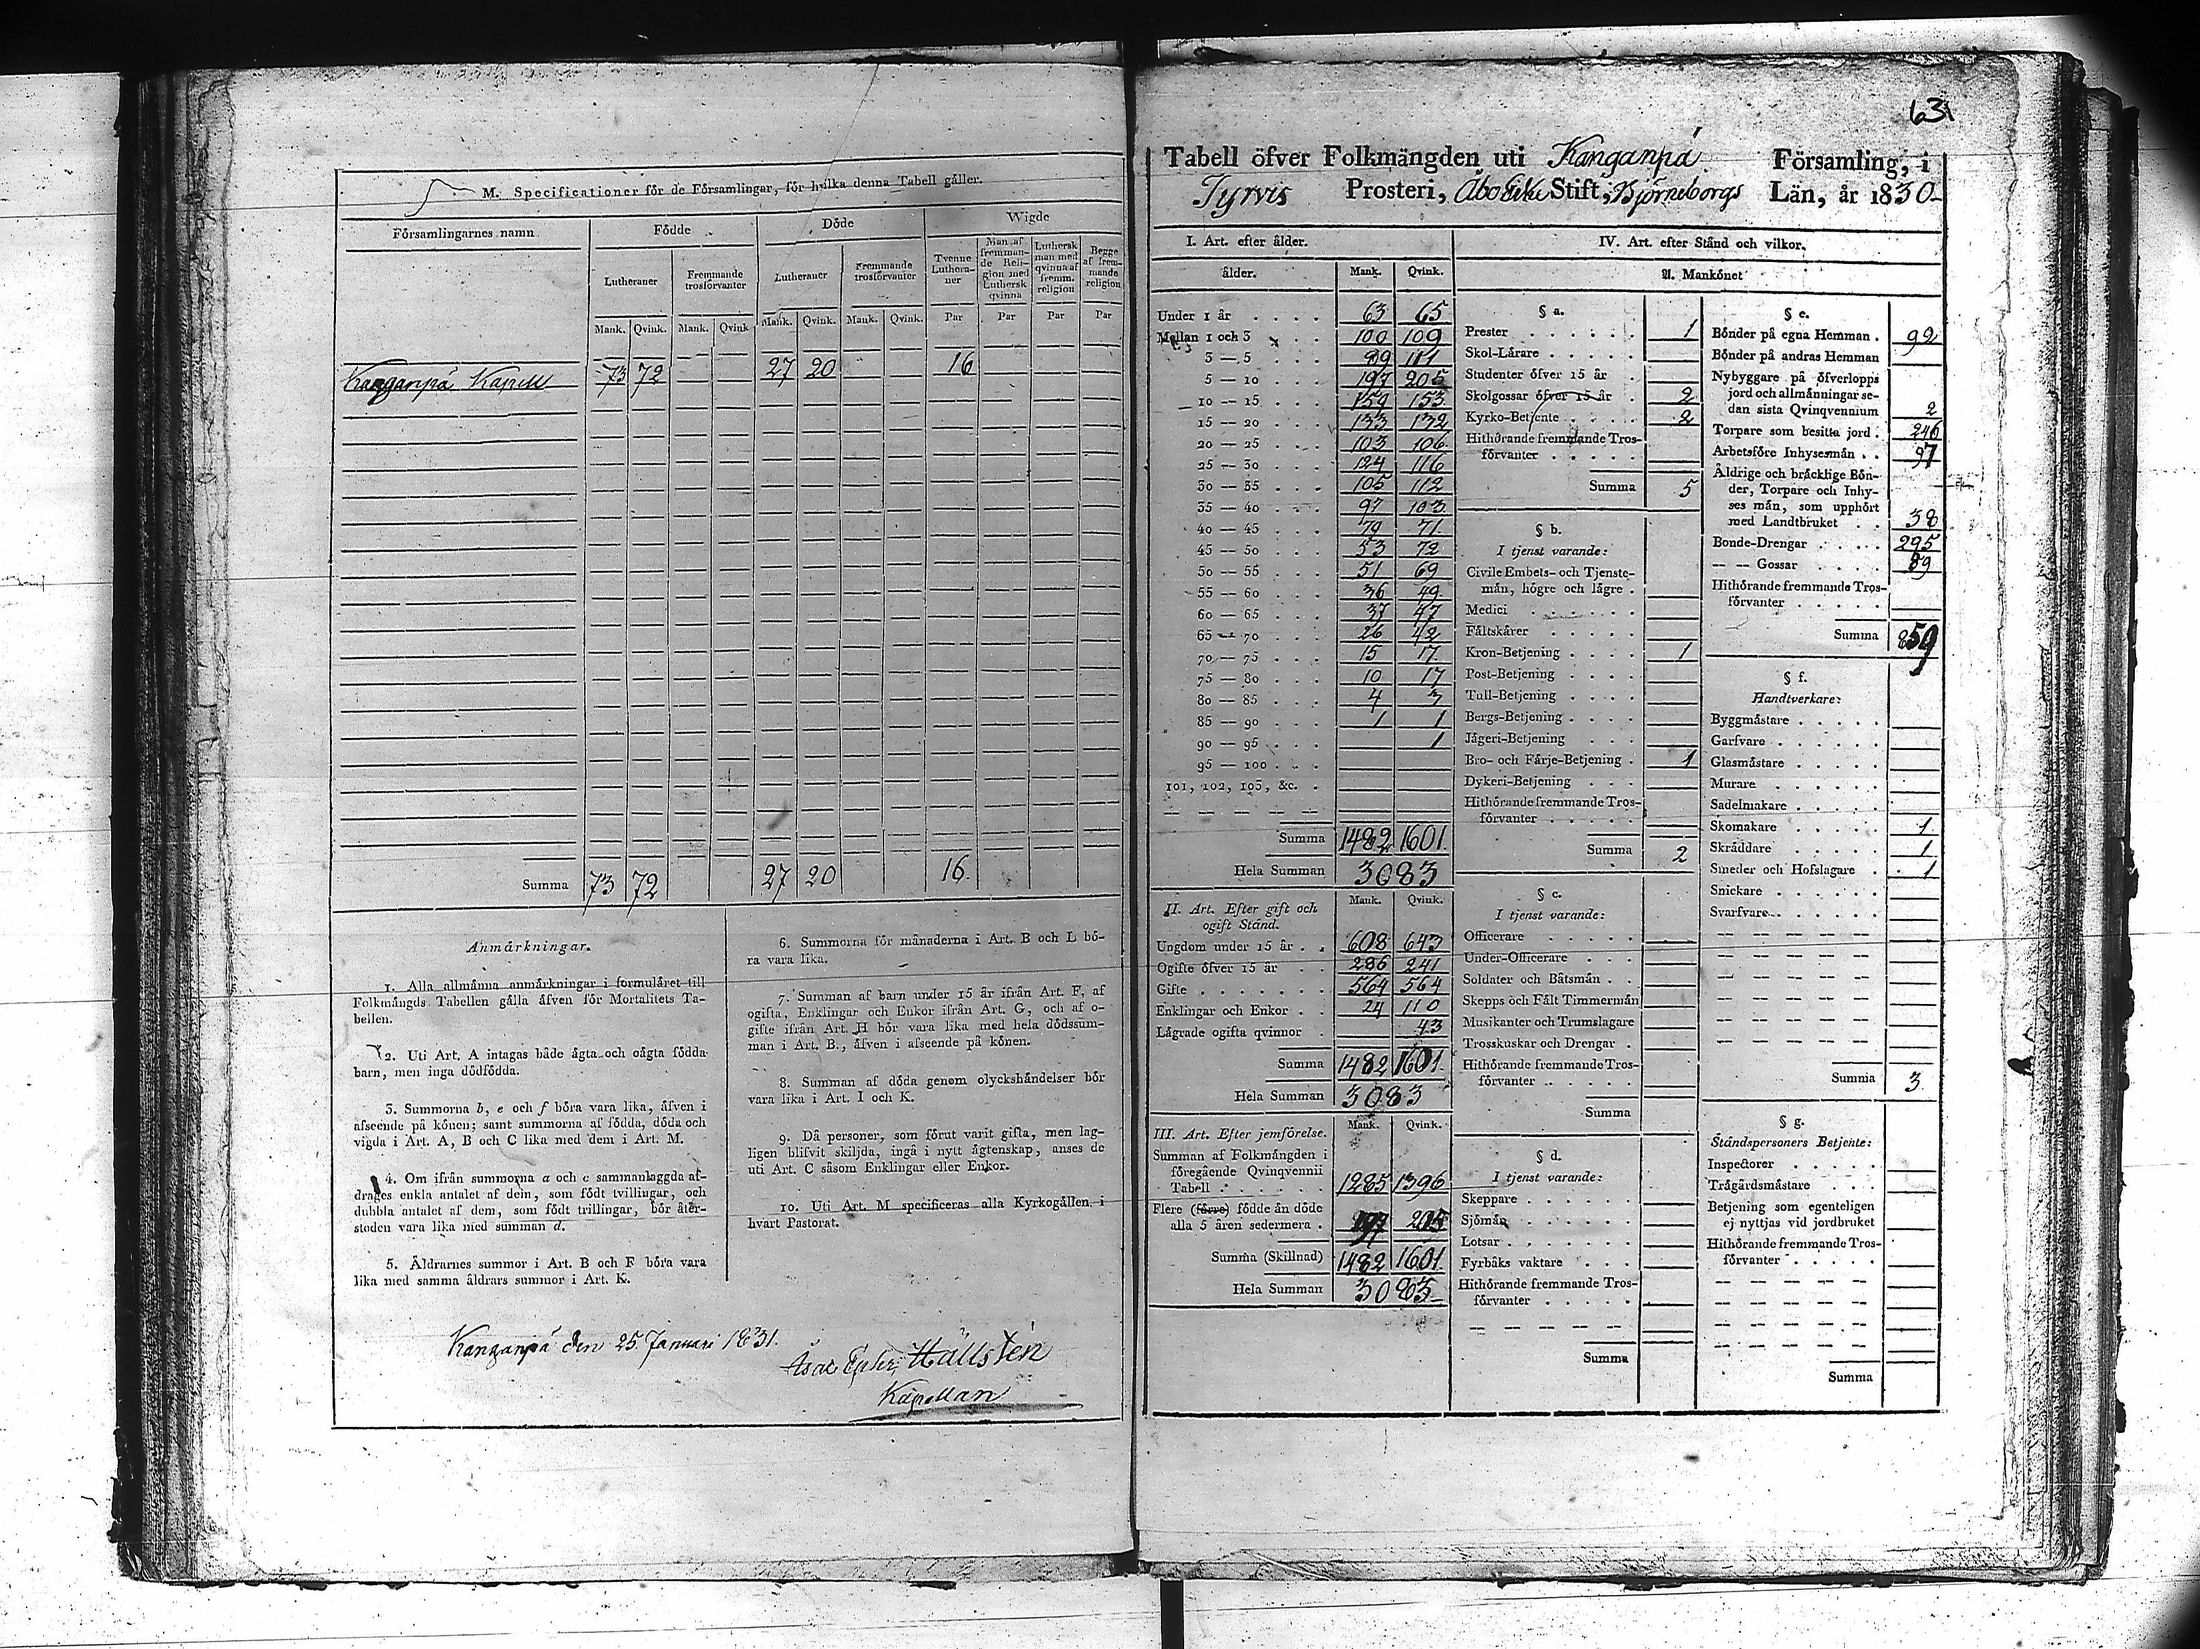 M. Specificationer för de Församlingar, för hvilka denna Tabell gäller.
Församlingarnes namn Födde Döde Wigde
Lutheraner Fremmande trosförvanter Lutheraner Fremmande trosförvanter Tvenne Lutheraner Man af fremmande Religion med Luthersk qvinna Luthersk man med qvinna af fremm. religion Begge af fremmande religion
Mank. Qvink. Mank. Qvink Mank. Qvink. Mank. Qvink. Par Par Par Par
Kanganpä Kapell 73 72 27 20 16
Summa 73 72 27 20 16.
Anmärkningar.
1. Alla allmänna anmärkningar i formuläret till
Folkmängds Tabellen gälla äfven för Mortalitets Ta-
bellen.
2. Uti Art. A intagas både ägta och oägta födda
barn, men inga dödfödda.
3. Summorna b, e och f böra vara lika, äfven i
afseende på könen; samt summorna af födda, döda och
vigda i Art. A, B och C lika med dem i Art. M.
4. Om ifrån summorna a och c sammanlaggda af-
drages enkla antalet af dem, som födt tvillingar, och
dubbla antalet af dem, som födt trillingar, bör åter-
stoden vara lika med summan d.
5. Åldrarnes summor i Art. B och F böra vara
lika med samma åldrars summor i Art. K.
6. Summorna för månaderna i Art. B och L bö-
ra vara lika.
7. Summan af barn under 15 år ifrån Art. F, af
ogifta, Enklingar och Enkor ifrån Art. G, och af o-
gifte ifrån Art. H bör vara lika med hela dödssum-
man i Art. B., äfven i afseende på könen.
8. Summan af döda genom olyckshändelser bör
vara lika i Art. I och K.
9. Då personer, som förut varit gifta, men lag-
ligen blifvit skiljda, ingå i nytt ägtenskap, anses de
uti Art. C såsom Enklingar eller Enkor.
10. Uti Art. M specificeras alla Kyrkogällen i
hvart Pastorat.
Kanganpä den 25 Januari 1831.
Hällstén
Kapellan
631
Tabell öfver Folkmängden uti Kanganpä Församling, i
Tyrvis Prosteri, Åbo Stift, Björneborgs Län, år 1830
I. Art. efter ålder.
ålder. Mank. Qvink.
Under 1 år 63 65
Mellan 1 och 3 100 109
3 — 5 89 111
5 — 10 197 205
10 — 15 159 153
15 — 20 133 132
20 — 25 103 106
25 — 30 124 116
30 — 35 105 112
35 — 40 97 103
40 — 45 79 71
45 — 50 53 72
50 — 55 51 69
55 — 60 36 49
60 — 65 37 47
65 — 70 26 42
70 — 75 15 17
75 — 80 10 17
80 — 85 4 3
85 — 90 1 1
90 — 95 1
95 — 100
101, 102, 103, &c.
Summa 1482 1601
Hela Summan 3083
II. Art. Efter gift och
ogift Stånd. Mank. Qvink.
Ungdom under 15 år 608 643
Ogifte öfver 15 år 286 241
Gifte 564 564
Enklingar och Enkor 24 110
Lägrade ogifta qvinnor 43
Summa 1482 1601
Hela Summan 3083
III. Art. Efter jemförelse. Mank. Qvink.
Summan af Folkmängden i
föregående Qvinqvennii
Tabell 1285 1396
Flere (färre) födde än döde
alla 5 åren sedermera 197 205
Summa (Skillnad) 1482 1601
Hela Summan 3083
IV. Art. efter Stånd och vilkor.
A. Mankönet
§ a.
Prester 1
Skol-Lärare
Studenter öfver 15 år
Skolgossar öfver 15 år 2
Kyrko-Betjente 2
Hithörande fremmande Tros-
förvanter
Summa 5
§ b.
I tjenst varande:
Civile Embets- och Tjenste-
män, högre och lägre
Medici
Fältskärer
Kron-Betjening 1
Post-Betjening
Tull-Betjening
Bergs-Betjening
Jägeri-Betjening
Bro- och Färje-Betjening 1
Dykeri-Betjening
Hithörande fremmande Tros-
förvanter
Summa 2
§ c.
I tjenst varande:
Officerare
Under-Officerare
Soldater och Båtsmän
Skepps och Fält Timmermän
Musikanter och Trumslagare
Trosskuskar och Drengar
Hithörande fremmande Tros-
förvanter
Summa
§ d.
I tjenst varande:
Skeppare
Sjömän
Lotsar
Fyrbåks vaktare
Hithörande fremmande Tros-
förvanter
Summa
§ e.
Bönder på egna Hemman 92
Bönder på andras Hemman
Nybyggare på öfverlopps
jord och allmänningar se-
dan sista Qvinqvennium 2
Torpare som besitta jord 246
Arbetsföre Inhysesmän 97
Åldrige och bräcklige Bön-
der, Torpare och Inhy-
ses män, som upphört
med Landtbruket 38
Bonde-Drengar 295
— — Gossar 89
Hithörande fremmande Tros-
förvanter
Summa 859
§ f.
Handtverkare:
Byggmästare
Garfvare
Glasmästare
Murare
Sadelmakare
Skomakare 1
Skräddare 1
Smeder och Hofslagare 1
Snickare
Svarfvare
Summa 3
§ g.
Ståndspersoners Betjente:
Inspectorer
Trägårdsmästare
Betjening som egenteligen
ej nyttjas vid jordbruket
Hithörande fremmande Tros-
förvanter
Summa